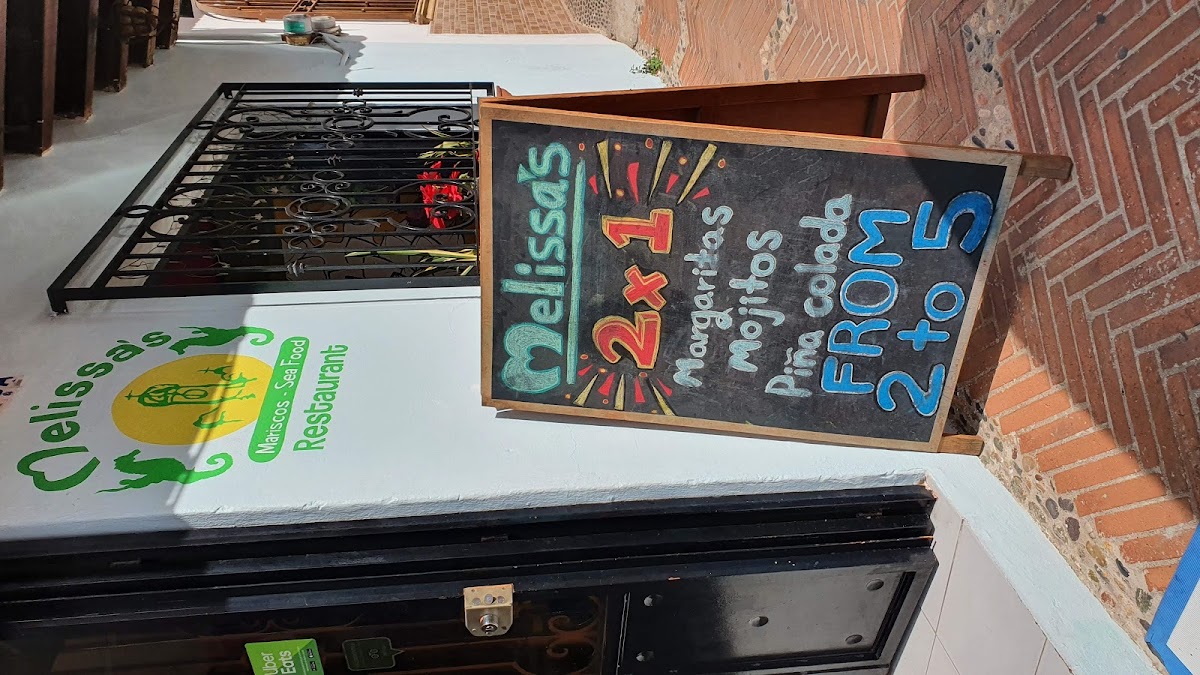 Melissa's
2x1
Margaritas
Mojitos
Piña colada
FROM
2 to 5
Melissa's
Mariscos - Sea Food
Restaurant
Uber
Eats